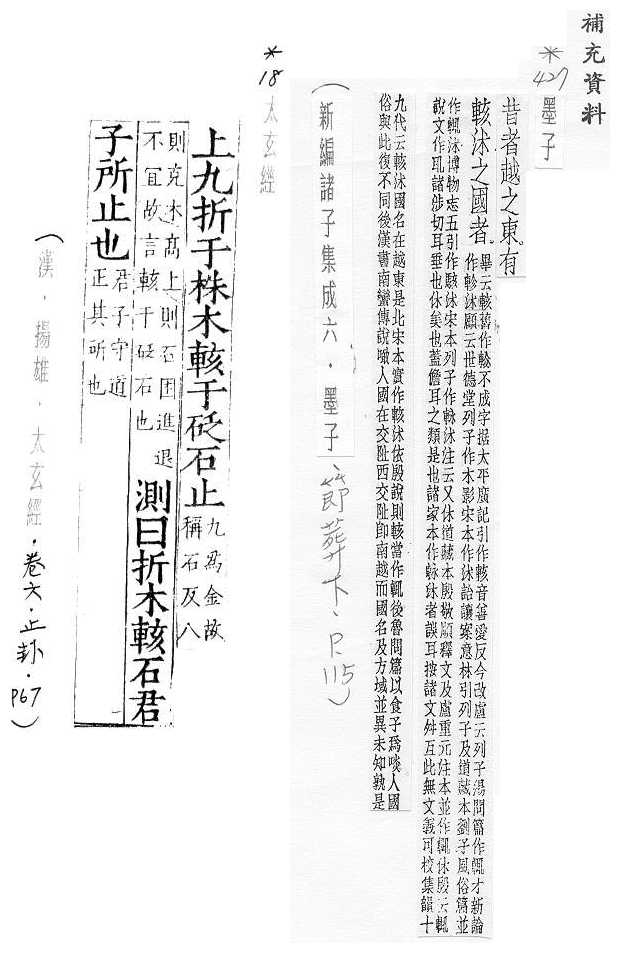 補充資料
*427
墨子
昔者越之東有
輆沐之國者
畢云輆舊作䡖不成字据太平廣記引作輆音善愛反今改盧云列子湯問篇作輒才新論
作軫沐顧云世德堂列子作木影宋本作沐詒讓案意林引列子及道藏本劉子風俗篇並
作輒沐博物志五引作駭沐宋本列子作䡖沐注云又休道藏本殷敬順釋文及盧重元注本並作輒休殷云輒
說文作耴諸涉切耳垂也休美也蓋儋耳之類是也諸家本作䡖沐者誤耳按諸文舛互此無文義可校集韻十
九代云輆沐國名在越東是北宋本實作輆沐依殷說則輆當作輒後魯問篇以食子爲啖人國
俗與此復不同後漢書南蠻傳說噉人國在交阯西交阯卽南越而國名及方域並異未知孰是
（新編諸子集成六．墨子、節葬下、P.115）
*18
太玄經
上九折于株木輆于砭石止
九爲金故
稱石及八
則克木高上則石困進退
不宜故言輆于砭石也
測曰折木輆石君
子所止也
君子守道
正其所也
（漢．揚雄．太玄經．卷六．止卦．P67）